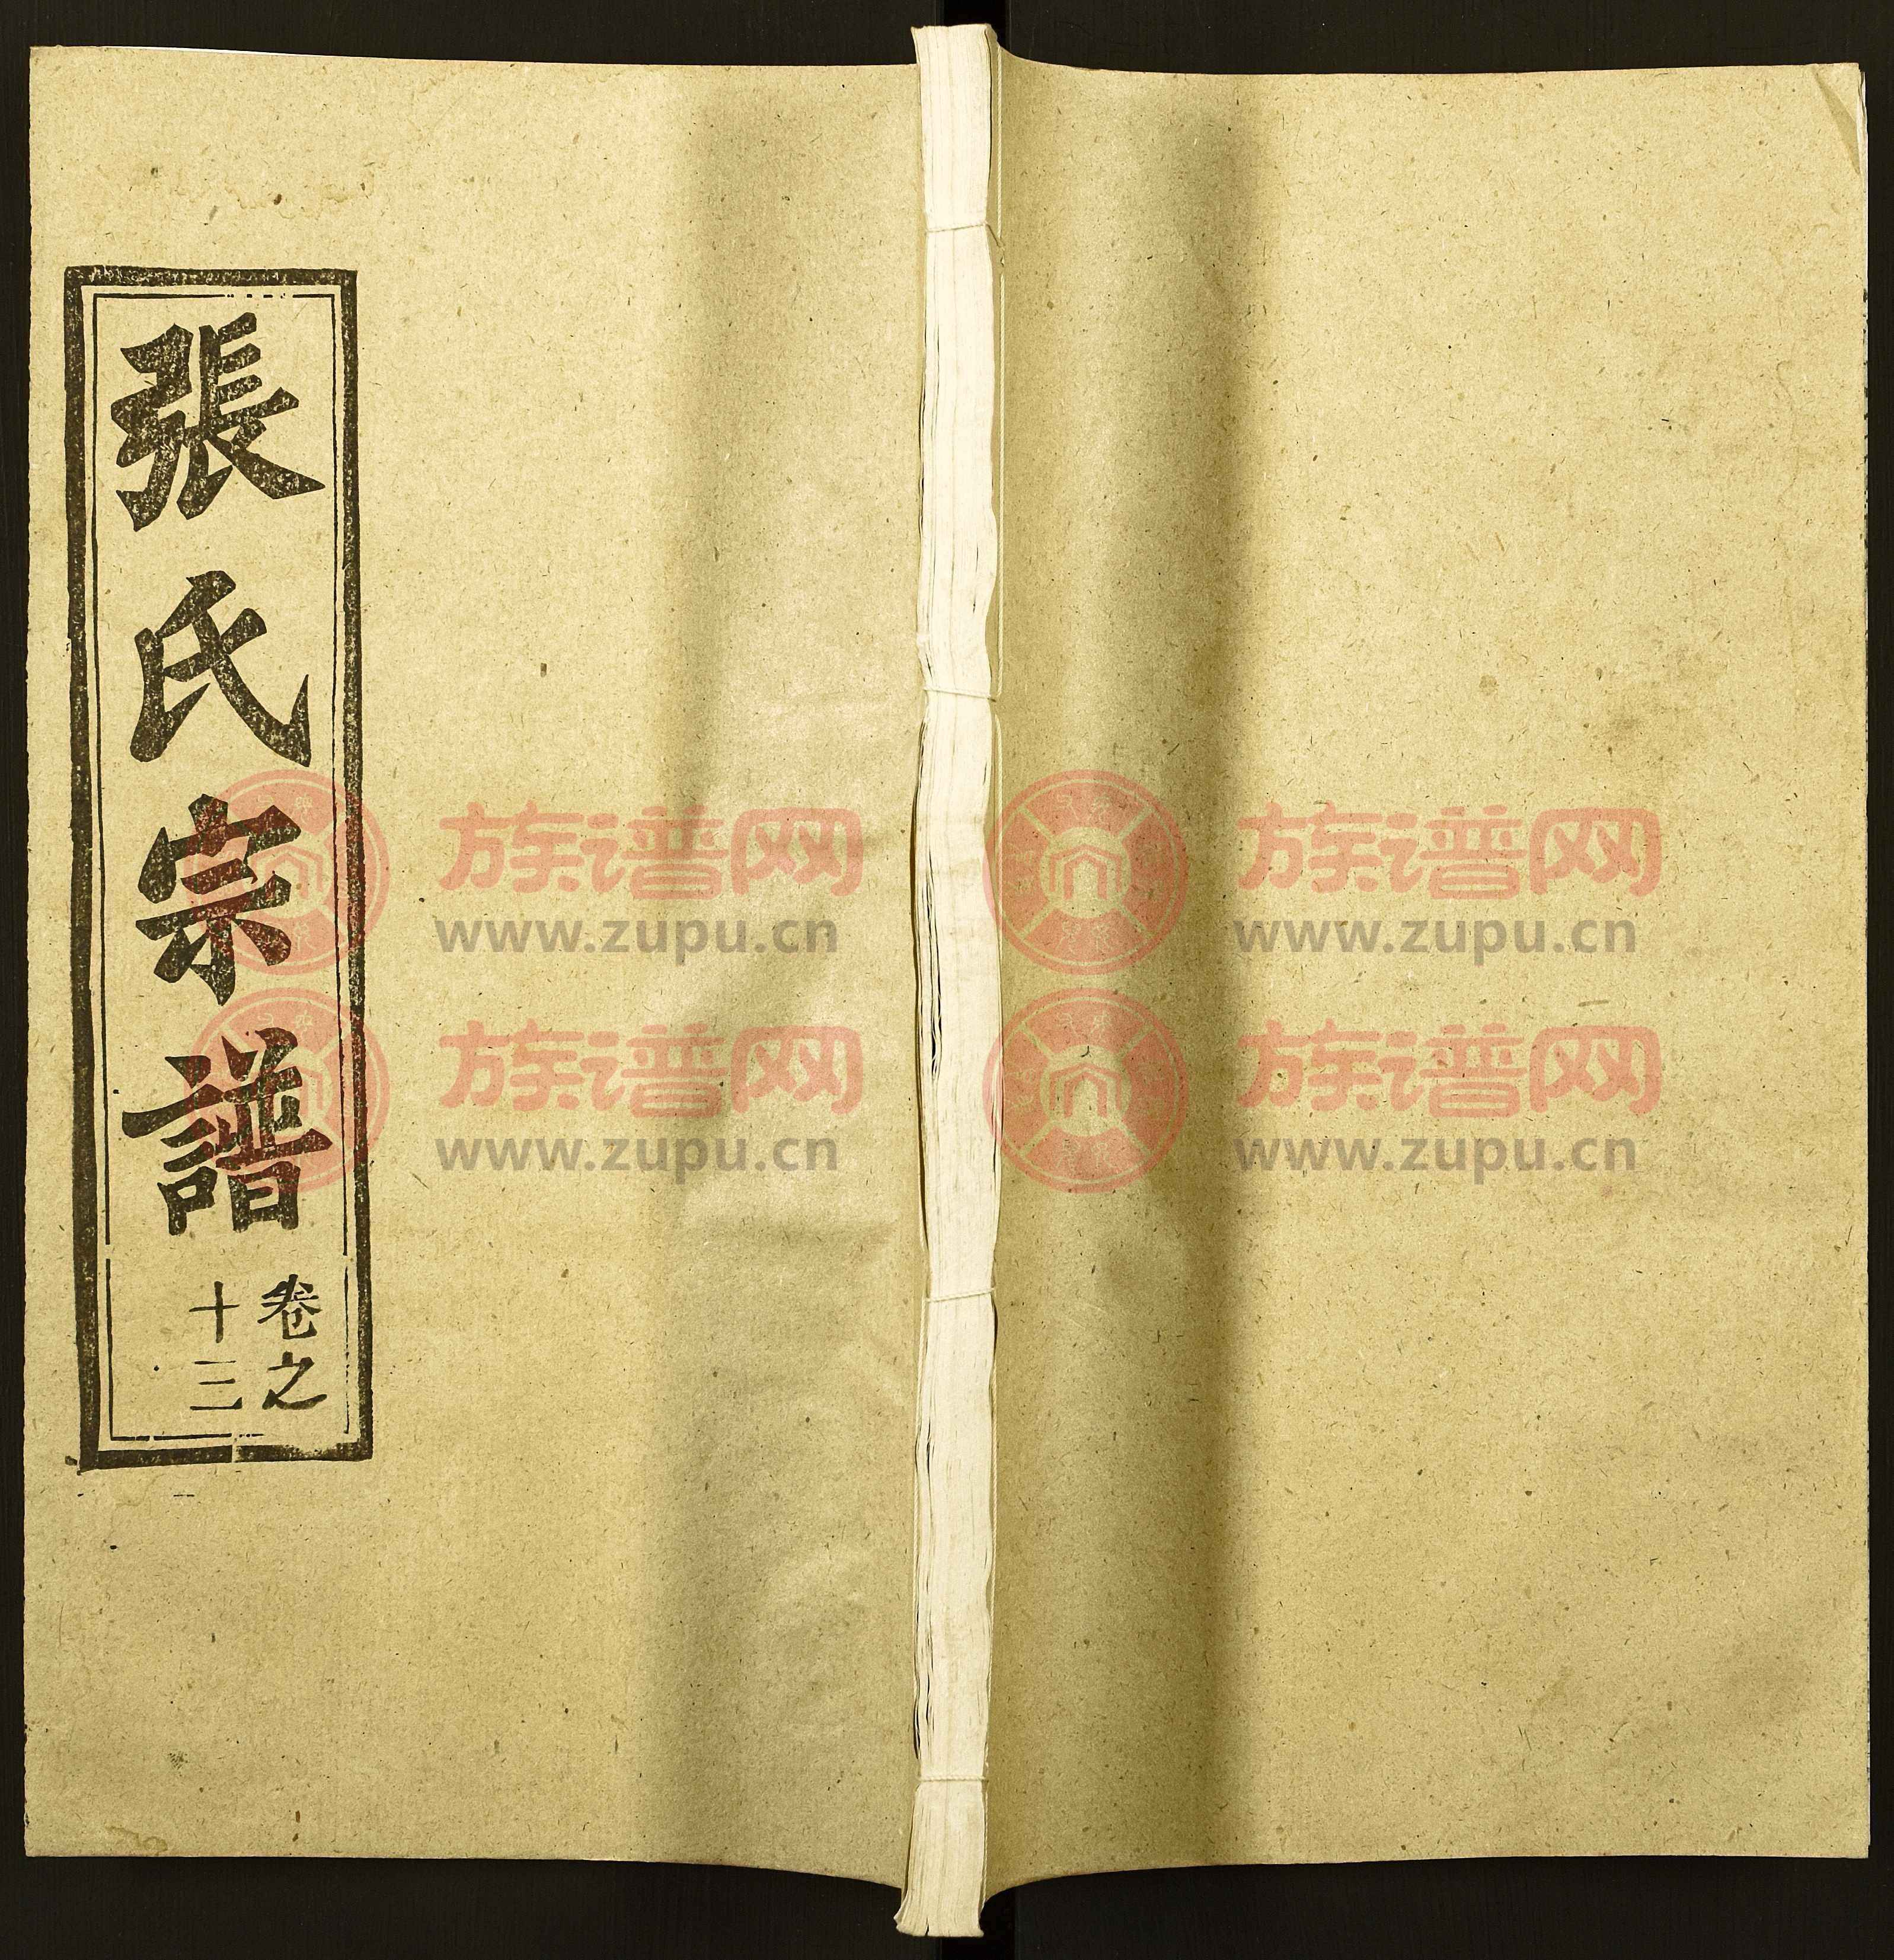 張氏宗譜
卷之
十三
族谱网
www.zupu.cn
族谱网
www.zupu.cn
族谱网
www.zupu.cn
族谱网
www.zupu.cn